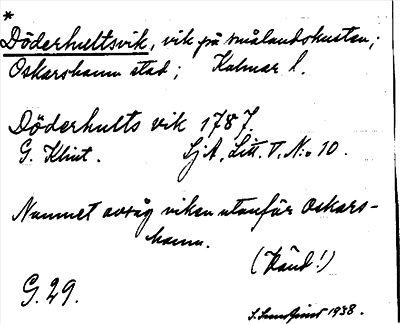 *
Döderhultsvik, vik på smålandskusten;
Oskarshamn stad; Kalmar l.
Döderhults vik 1787.
G. Klint. SjA, Litt. T, N:o 10.
Namnet avsåg viken utanför Oskars-
hamn.
(Känd!)
G. 29.
1938.